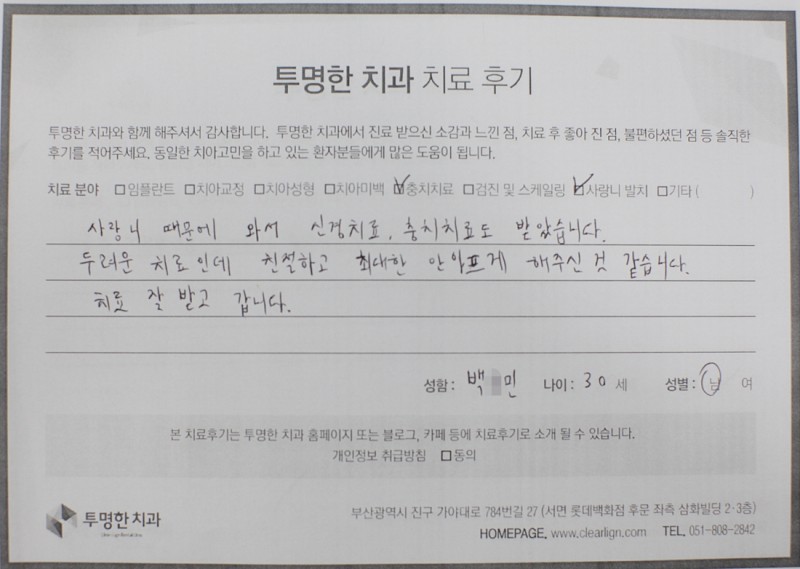 투명한 치과 치료 후기
투명한 치과와 함께 해주셔서 감사합니다. 투명한 치과에서 진료 받으신 소감과 느낀 점, 치료 후 좋아 진 점, 불편하셨던 점 등 솔직한
후기를 적어주세요. 동일한 치아고민을 하고 있는 환자분들에게 많은 도움이 됩니다.
치료 분야 □임플란트 □치아교정 □치아성형 □치아미백 ☑충치치료 □검진 및 스케일링 ☑사랑니 발치 □기타 ( )
사랑니 때문에 와서 신경치료, 충치치료도 받았습니다.
두려운 치료인데 친절하고 최대한 안아프게 해주신 것 같습니다.
치료 잘 받고 갑니다.
성함 : 백 민 나이 : 30 세 성별 : 남 여
본 치료후기는 투명한 치과 홈페이지 또는 블로그, 카페 등에 치료후기로 소개 될 수 있습니다.
개인정보 취급방침 □동의
투명한 치과
부산광역시 진구 가야대로 784번길 27 (서면 롯데백화점 후문 좌측 삼화빌딩 2·3층)
HOMEPAGE. www.clearlign.com TEL. 051-808-2842